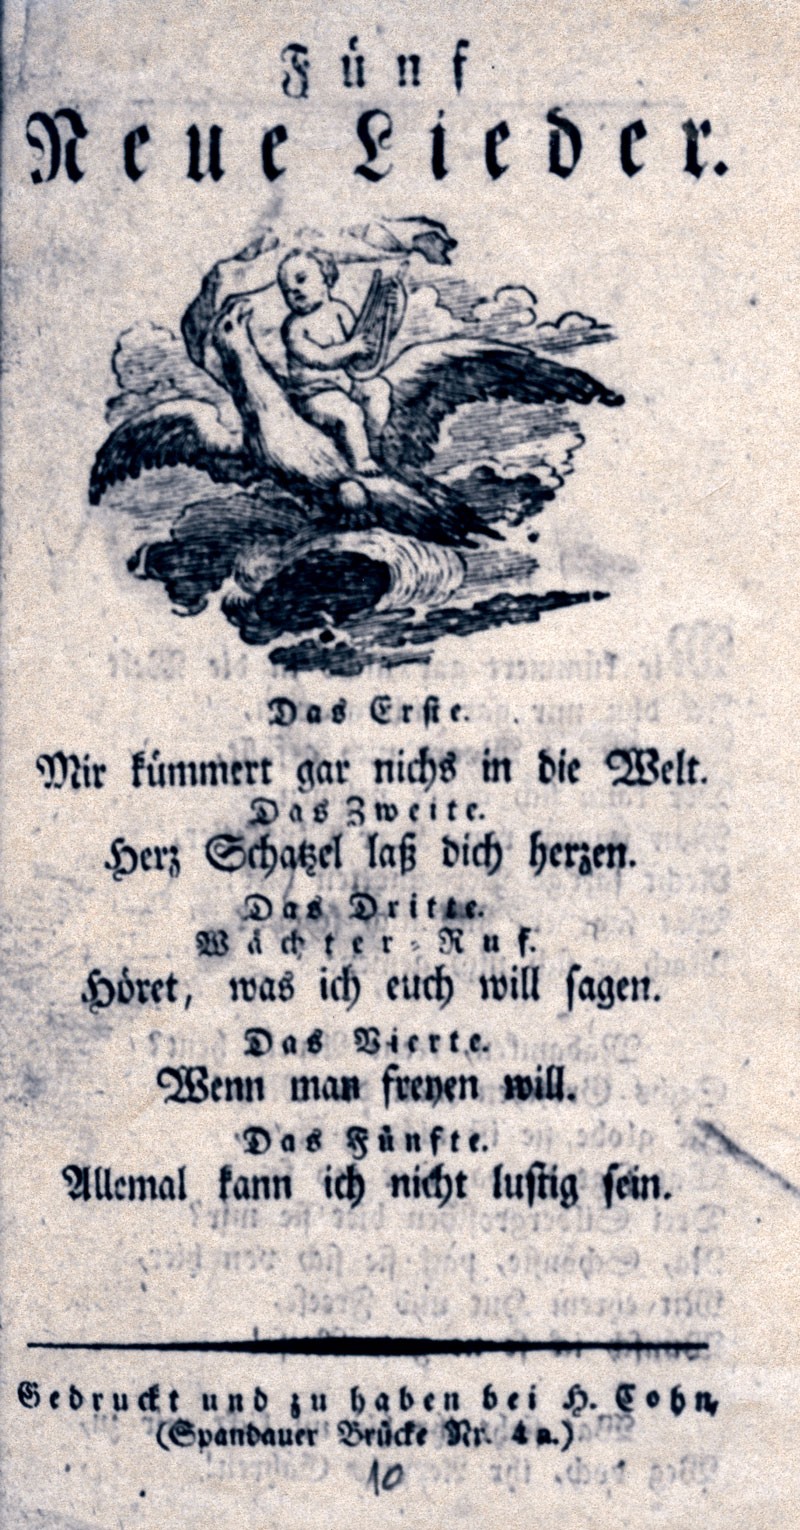 Fünf
Neue Lieder.
Das Erste.
Mir kümmert gar nichs in die Welt.
Das Zweite.
Herz Schatzel laß dich herzen.
Das Dritte.
Wächter-Ruf.
Höret, was ich euch will sagen.
Das Vierte.
Wenn man freyen will.
Das Fünfte.
Allemal kann ich nicht lustig sein.
Gedruckt und zu haben bei H. Cohn,
(Spandauer Brücke Nr. 4 a.)
10